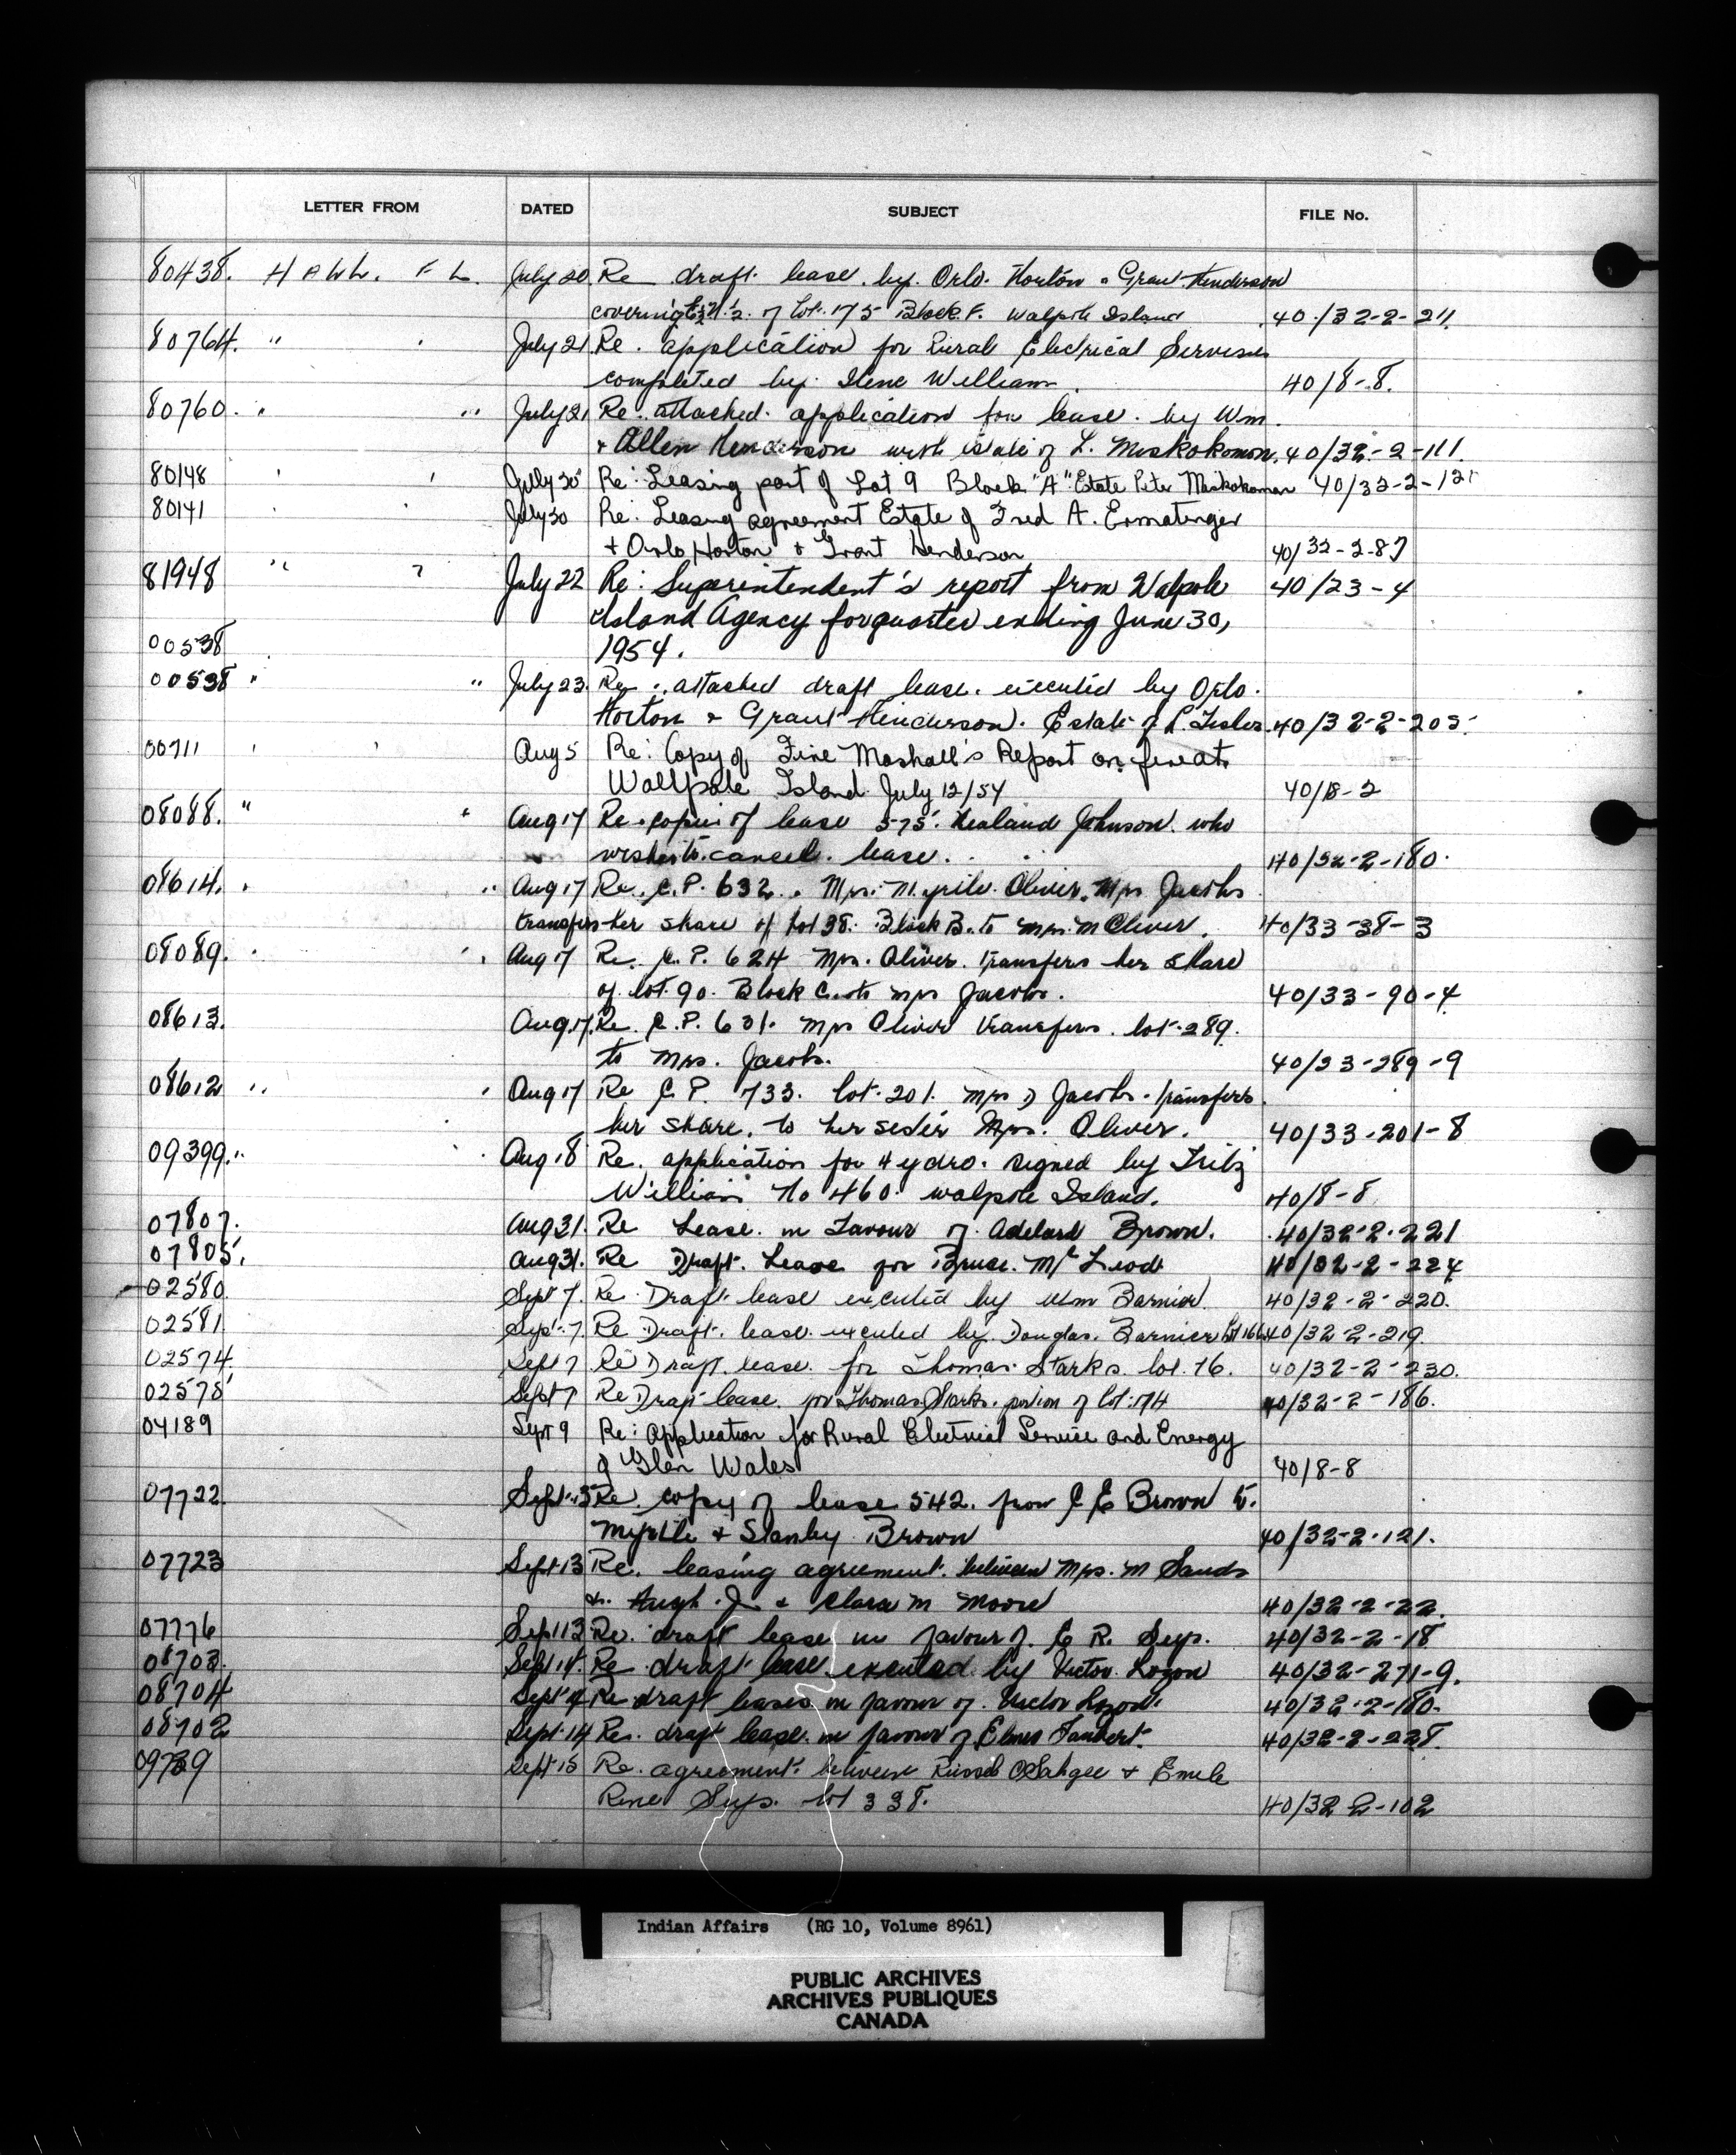 LETTER FROM DATED SUBJECT FILE No.
80438. July 20 Re draft lease by Orlo Horton & Grant Henderson
covering of Lot 175 Block F. Walpole Island 40/32-2-211.
80764. " July 21 Re. application for Rural Electrical Services
completed by Ilene Williams. 40/8-8.
80760. " " July 21 Re. attached application for lease by Wm.
& Allen Henderson with Estate of L. Miskokomon. 40/32-2-111.
80148 July 20 Re: Leasing part of Lot 9 Block "A" Estate Peter Miskokoman 40/32-2-121
80141 July 30 Re: Leasing agreement Estate of Fred A. Ermatinger
+ Orlo Horton + Grant Henderson 40/32-2-87
81948 " July 22 Re: Superintendent's report from Walpole 40/23-4
Island Agency for quarter ending June 30,
00538 1954.
00538 " " July 23. Re. attached draft lease executed by Orlo
Horton & Grant Henderson. Estate of 40/32-2-205.
00711 Aug 5 Re: Copy of Fire Mashall's Report on fire at
Wallpole Island July 12/54 40/18-2
08088. " " Aug 17 Re copies of lease 575. Johnson who
wishes to cancel lease. 40/32-2-180.
08614. " Aug 17 Re. C.P. 632. Mrs. Oliver. Mrs Jacobs
transfers her share of lot 38. Block B. to Mrs. M Oliver. 40/33-38-3
08089. Aug 17 Re. C.P. 624 Mrs. Oliver transfers her share
of lot 90. Block C. to Mrs Jacobs. 40/33-90-4
08613. Aug 17. Re. C.P. 631. Mrs Oliver transfers lot 289.
to Mrs. Jacobs. 40/33-289-9
08612 " Aug 17 Re C.P. 733. lot 201. Mrs D Jacobs transfers
her share to her sister Mrs. Oliver. 40/33-201-8
09399. " Aug 18 Re. application for Hydro signed by Fritz
Williams No 460. Walpole Island. 40/8-8
07807. Aug 31. Re Lease in Favour of Adelard Brown. 40/32-2-221
07805. Aug 31. Re Draft Lease for Bruce McLeod 40/32-2-224
02580. Sept 7. Re Draft lease executed by Wm Barnier. 40/32-2-220.
02581 Sept. 7 Re Draft lease executed by Douglas Barnier Lot 166 40/32-2-219.
02574. Sept 7 Re Draft lease for Thomas Starks lot 76. 40/32-2-230.
02575 Sept 7 Re Draft lease for Thomas Starks portion of lot 174 40/32-2-186.
04189 Sept 9 Re: Application for Rural Electrical Service and Energy
of Glen Wales 40/8-8
07722. Sept. 13 Re. copy of lease 542. from C E Brown to
Myrtle & Stanley Brown 40/32-2-121.
07723 Sept 13 Re. leasing agreement between Mrs. M Sands
& Hugh J. & Clara M Moore 40/32-2-22.
07776 Sept 13 Re. draft lease in favour of E R Seys. 40/32-2-18
08703. Sept 14. Re draft lease executed by Victor Lozon 40/32-271-9.
08704 Sept 14 Re draft leases in favour of Victor Lozon. 40/32-2-180.
08702 Sept 14 Re. draft lease in favour of Elmer 40/32-2-228.
09739 Sept 15 Re. agreement between Russel & Emile
Rene Seys. lot 338. 40/32-2-102
Indian Affairs (RG 10, Volume 8961)
PUBLIC ARCHIVES
ARCHIVES PUBLIQUES
CANADA